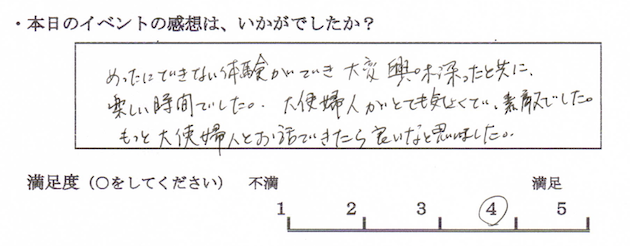 ・本日のイベントの感想は、いかがでしたか？
めったにできない体験ができ 大変興味深ったと共に、
楽しい時間でした。大使婦人がとても気さくで、素敵でした。
もっと大使婦人とお話できたら良いなと思いました。
満足度（○をしてください） 不満 満足
1 2 3 4 5